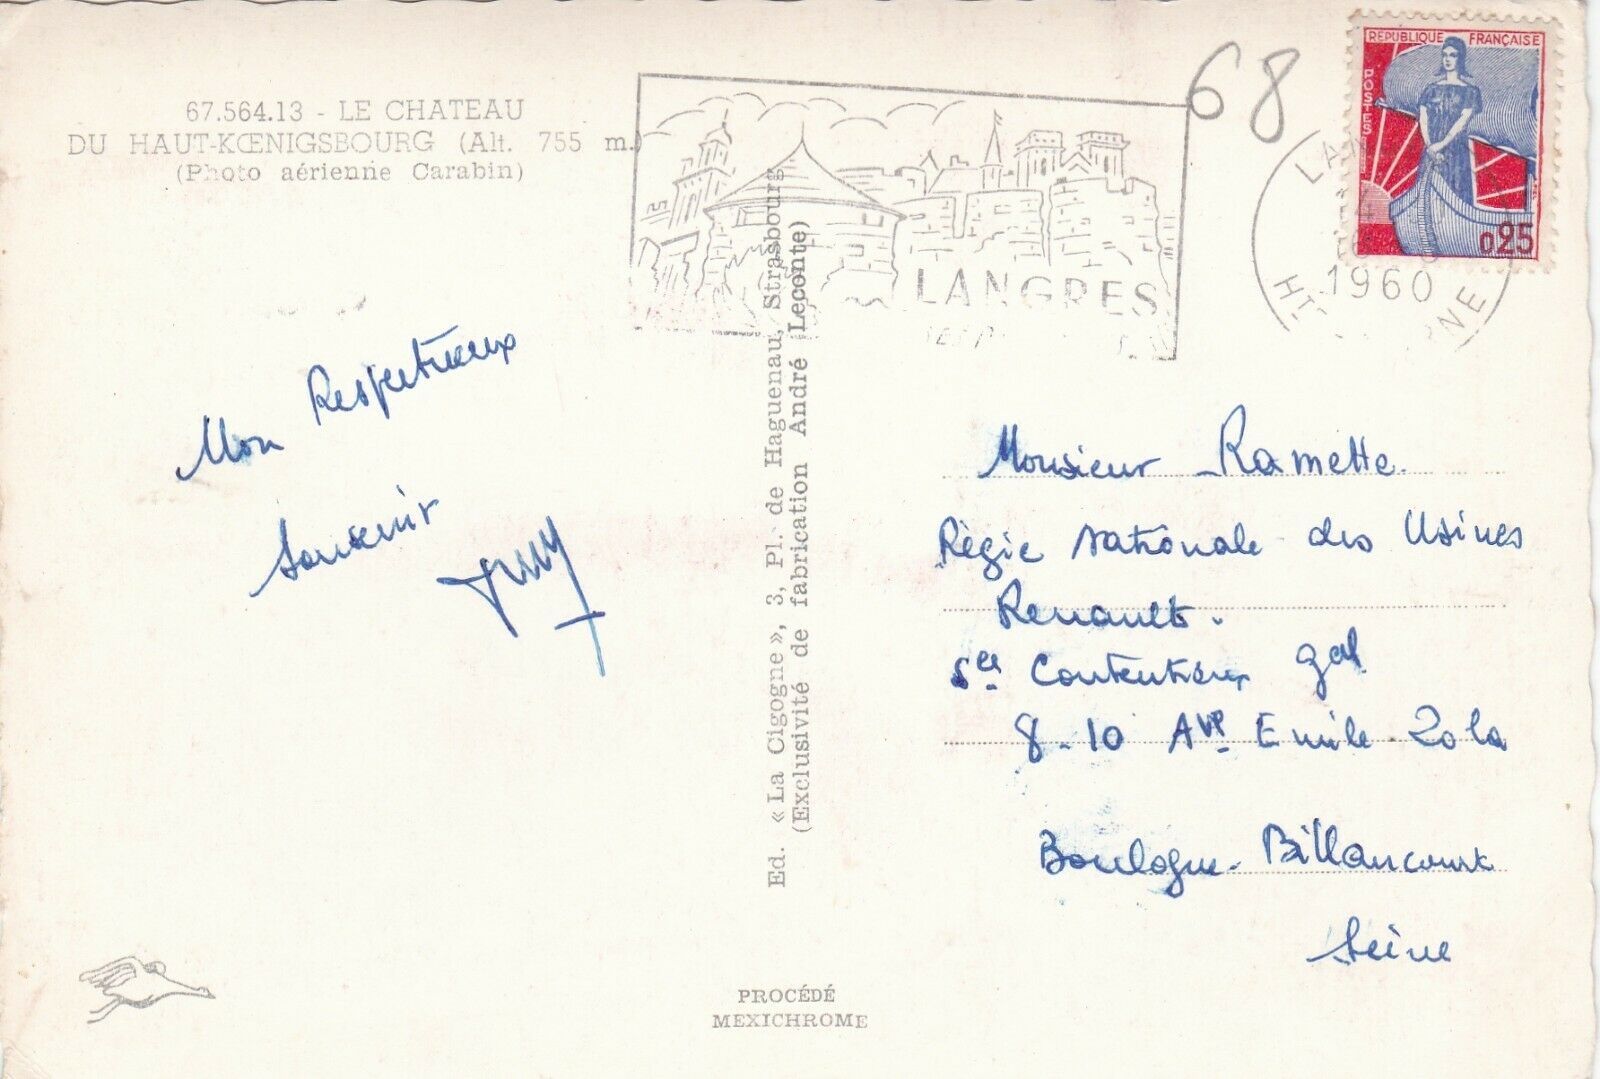 67.564.13 - LE CHATEAU
DU HAUT-KŒNIGSBOURG (Alt. 755 m.)
(Photo aérienne Carabin)
68
RÉPUBLIQUE FRANÇAISE
POSTES
0,25
LANGRES
1960
Mon Respectueux
Souvenir
Ed. « La Cigogne », 3, Pl. de Haguenau, Strasbourg
(Exclusivité de fabrication André Leconte)
Monsieur Ramette.
Régie Nationale des Usines
Renault.
Sce Contentieux gal
8-10 Ave Emile Zola
Boulogne-Billancourt
Seine
PROCÉDÉ
MEXICHROME